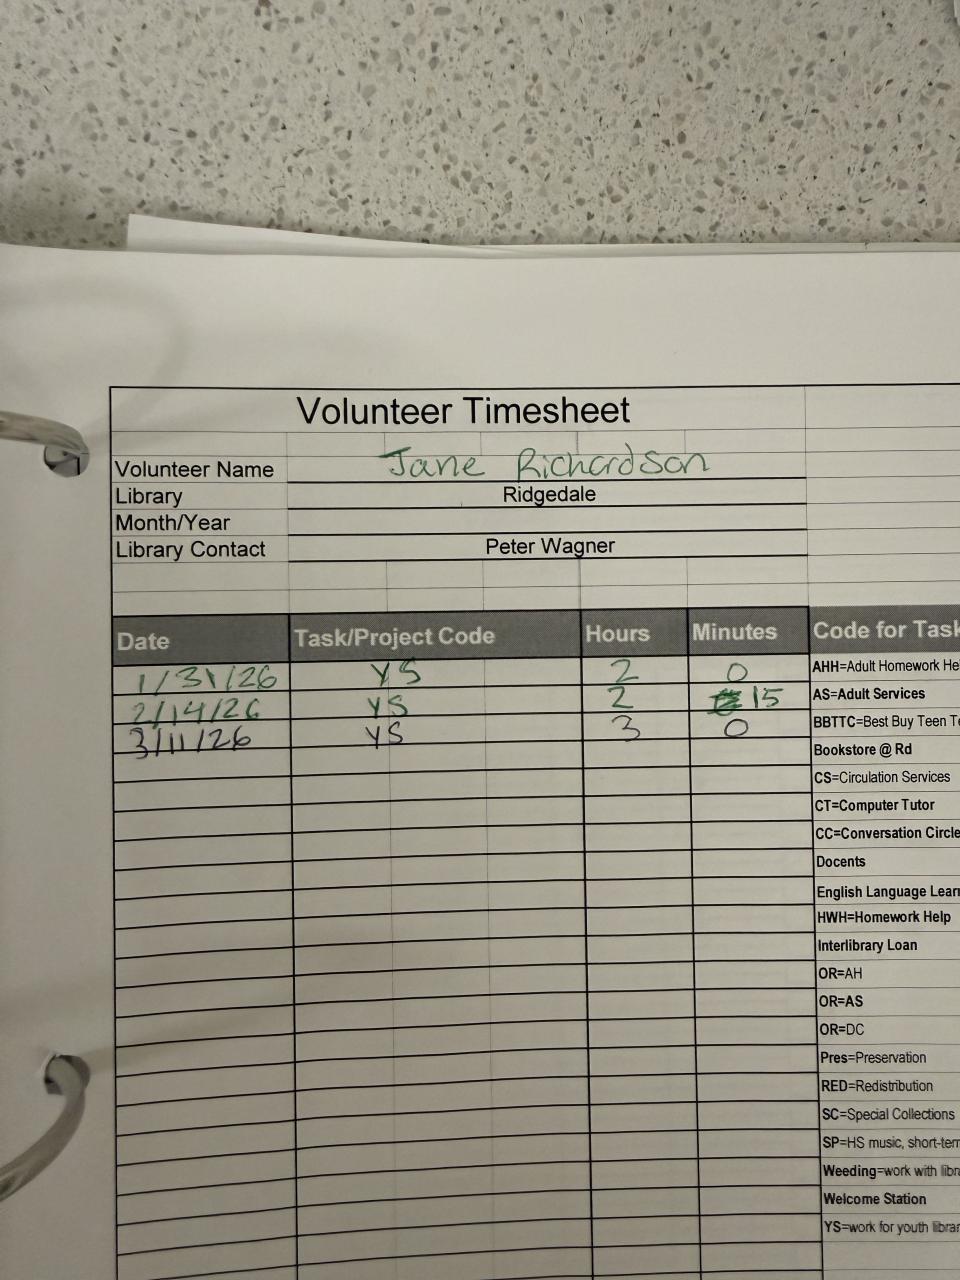 Volunteer Timesheet
Volunteer Name Jane Richardson
Library Ridgedale
Month/Year
Library Contact Peter Wagner
Date Task/Project Code Hours Minutes Code for Task
1/31/26 YS 2 0 AHH=Adult Homework He
2/14/26 YS 2 15 AS=Adult Services
3/11/26 YS 3 0 BBTTC=Best Buy Teen Te
Bookstore @ Rd
CS=Circulation Services
CT=Computer Tutor
CC=Conversation Circle
Docents
English Language Learn
HWH=Homework Help
Interlibrary Loan
OR=AH
OR=AS
OR=DC
Pres=Preservation
RED=Redistribution
SC=Special Collections
SP=HS music, short-term
Weeding=work with libra
Welcome Station
YS=work for youth librar